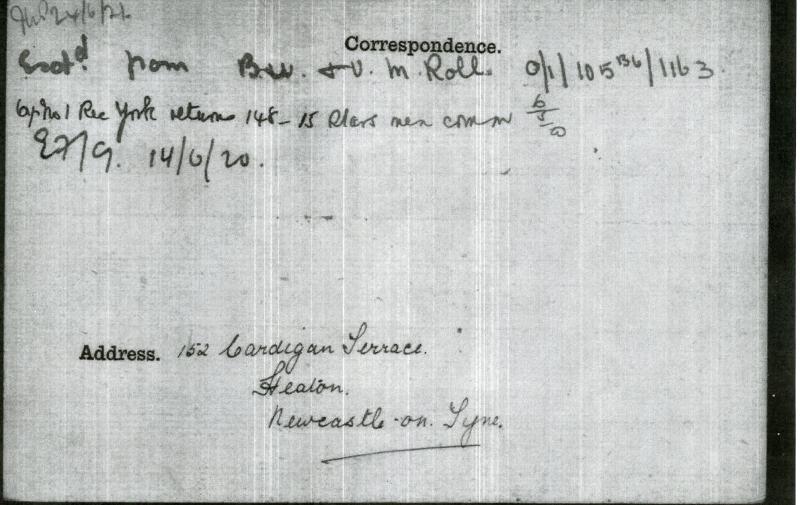 24/6/21
Correspondence.
Extd. from B.W. & V. M. Roll. O/1/105136/1163
No 1 Rec York returns 148-15 Stars men comm
E7/9. 14/6/20.
Address. 152 Cardigan Terrace.
Heaton.
Newcastle-on. Tyne.